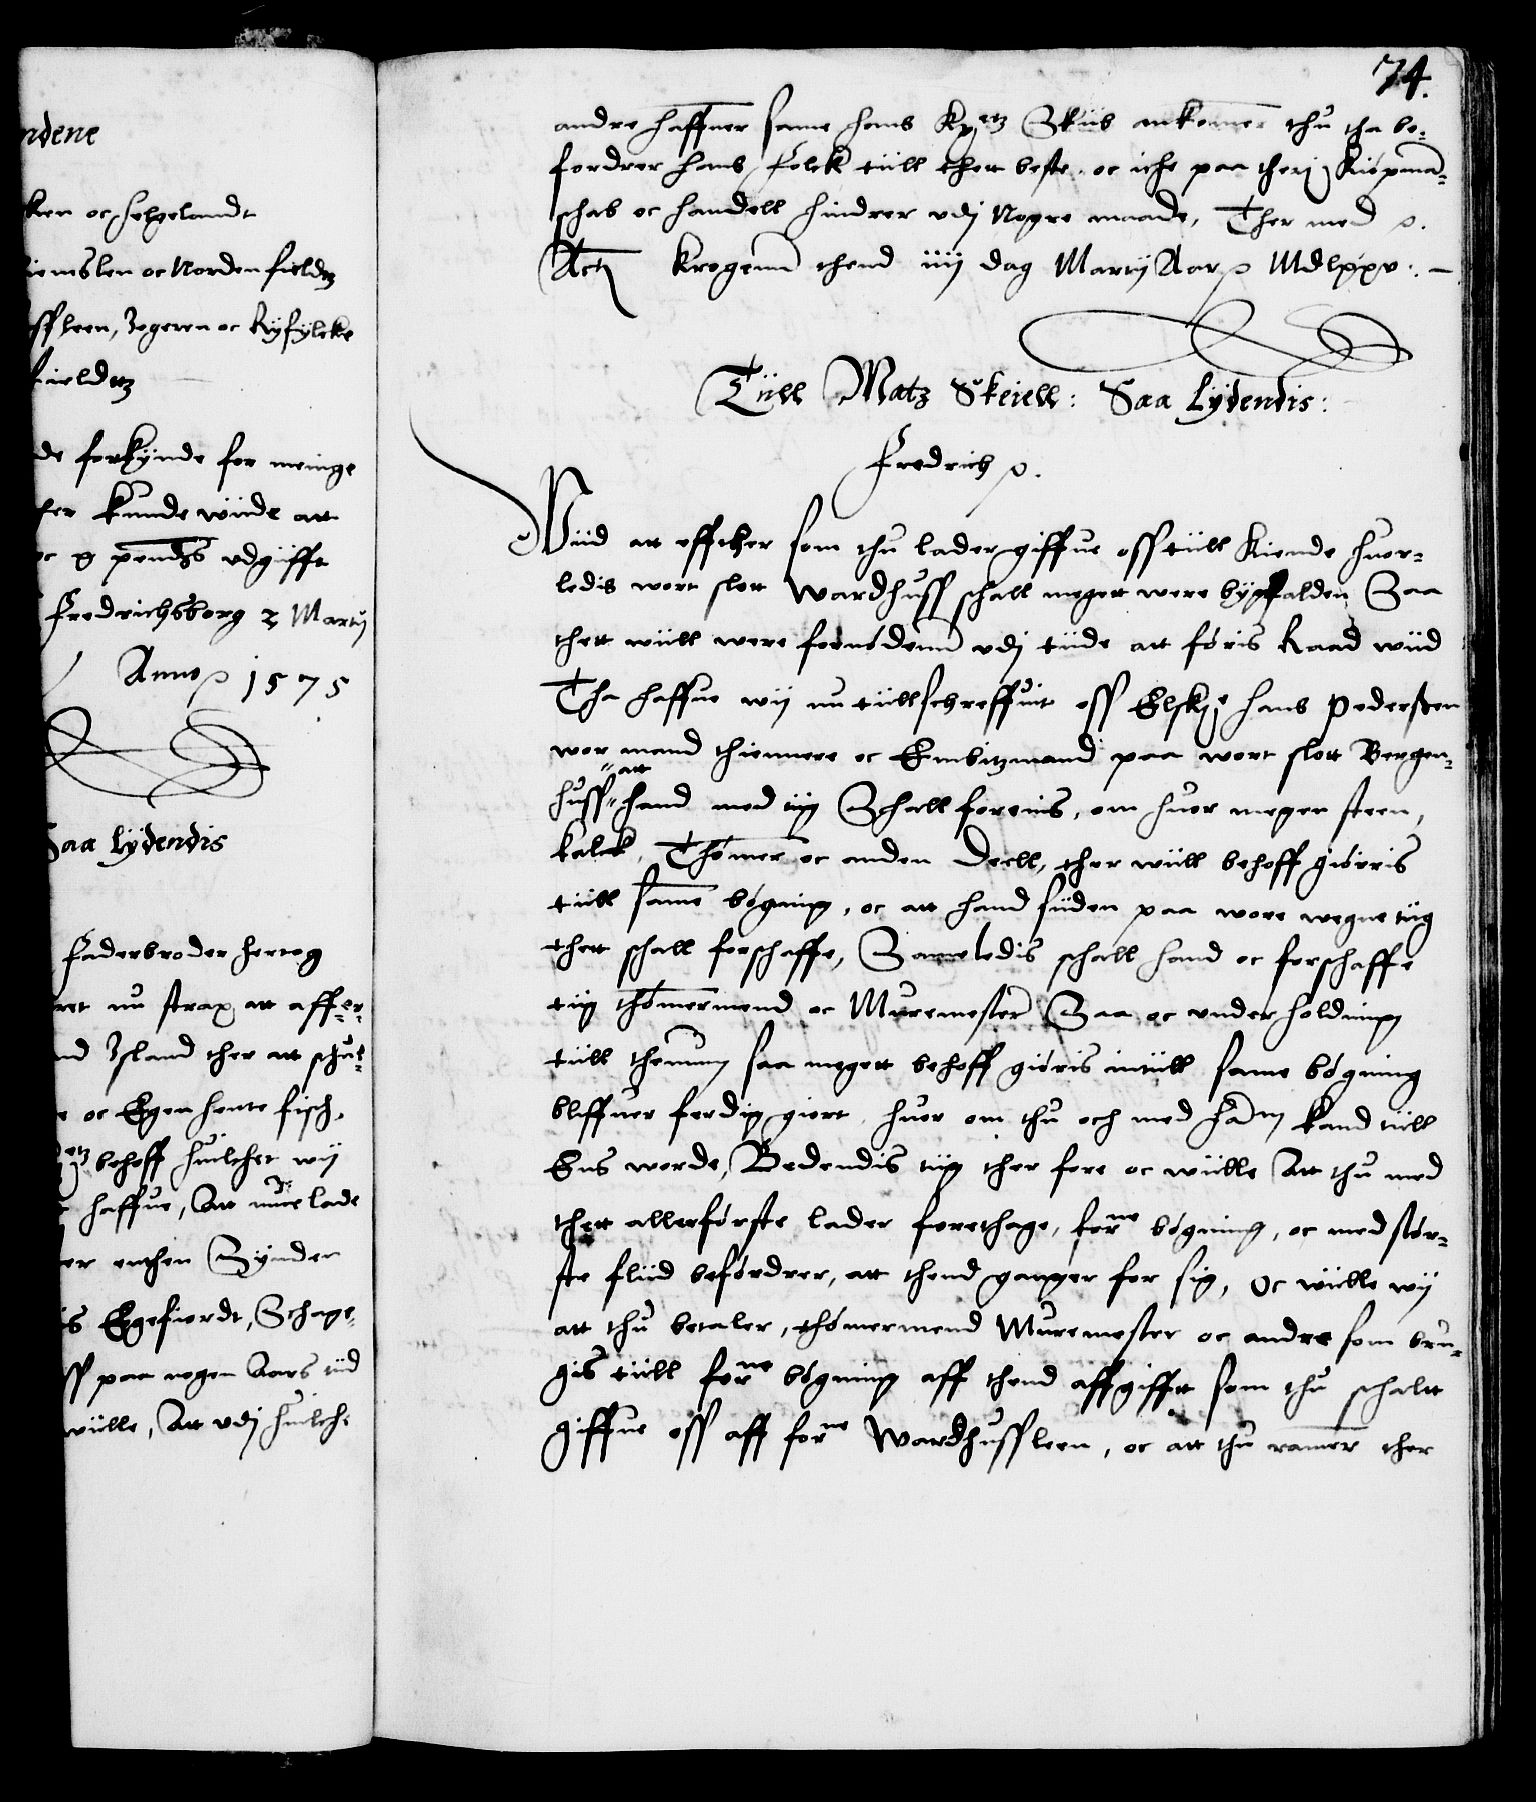 ndene
ken oc Helgelandt
iemslen oc Nordenfieldtz
ffleen, Jegeren oc Ryfylcke
fieldtz
de forkynde for menige
ther kunde wiide att
oc g pendzs udgifft
Fredrichsborg 2 Martij
Anno ꝛ 1575
Saa lydendis
Faderbroder hertog
ret nu strax att affer-
nd Island ther att schul-
e oc Egen hente fisch,
etz behoff huilchet wij
haffue, Att lade
er enthen Synder
is Eggefiordt, Schage-
ff paa nogen Aars tiid
wille, Att udj huilche
74.
andre haffner same hans Ky: etz Skiib ankommer thu tha be-
fordrer hans folck tiill thett beste, oc iche paa theris Kiøpmand-
schab oc handell hindrer udj nogre maade, Ther med ꝛ.
Actum Krogenn thend iiij dag Martij Aar ꝛ Mdlxxv.
Tiill Matz Skeiell: Saa Lydendis:
Fredrich ꝛ.
Wiid att effther som thu lader giffue oss tiill kiende huor-
ledis wort slott Wardhuss schall megett were bygfalden Saa
thett wiill were fornødenn udj tiide att føris Raad wiid
Tha haffue wij nu tiillschreffuit oss Elskℯ Hans Pedersten
wor mand thiennere oc Embitzmand paa wort slott Bergen-
huss att hand med tig Schall forenis, om huor megen steen,
kalck, Thømer oc anden deell, ther wiill behoff giøris
tiill same bøgning, oc att hand siiden paa wore wegne tiig
thett schall forschaffe, Sameledis schall hand oc forschaffe
tiig thømermend oc Muremester Saa oc underholdning
tiill thennum saa megett behoff giøris intiill same bøgning
bliffuer ferdig giort, huor om thu och med ham kand tiill
Ens worde, Bedendis tiig ther fore oc wiille Att thu med
thett allerførste lader forethage, forne bøgning, oc med stør-
ste fliid befordrer, att thend ganger for sig, Oc wiille wij
att thu betaler, thømermend Muremester oc andre som bru-
gis tiill forne bøgning aff thend affgifft som thu schaltt
giffue oss aff forne Wardhussleen, oc att thu ramer ther